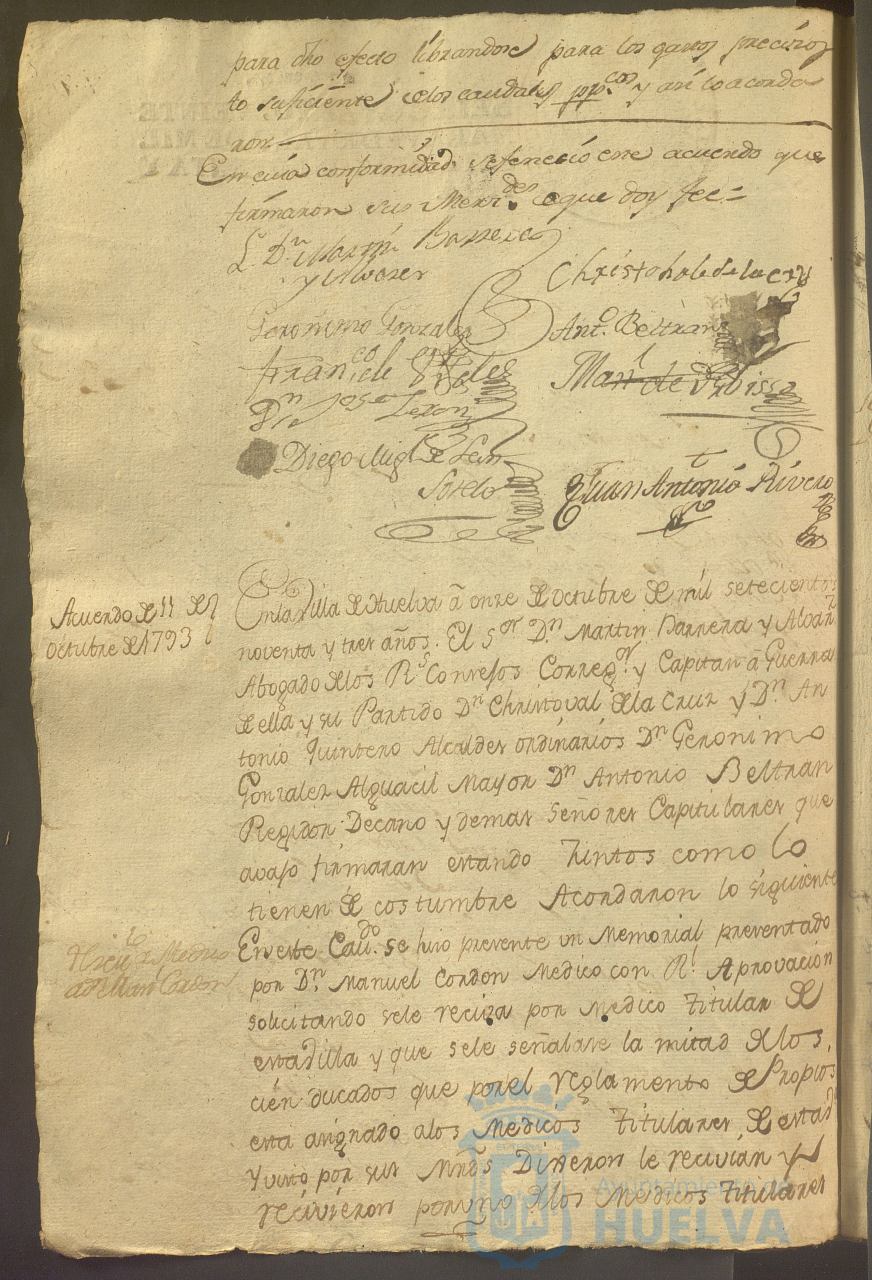 para dho efecto librandose para los gastos precisos
lo suficiente de los caudales pp.cos y asi lo acorda
ron.
En cuia conformidad se feneció este acuerdo que
firmaron sus Merz.des de que doy fee=
L. Dn Martin Barrera
y Alvarez
Christobal de la Cruz
Geronimo Gonzalez
Anto. Beltran
Fran.co de
Manl de
Dn Jose
Diego Migl de Leon
Sotelo
Juan Antonio Rivero
Acuerdo de 11 de
Octubre de 1793
En la Villa de Huelva â onze de octubre de mil setecientos
noventa y tres años. El Sor Dn Martin Barrera y Alvarz
Abogado de los Rs Consejos Corregor y Capitan â Guerra
de ella y su Partido Dn Christoval de la Cruz y Dn An
tonio Quintero Alcaldes ordinarios Dn Geronimo
Gonzalez Alguacil Mayor Dn Antonio Beltran
Regidor Decano y demas señores Capitulares que
avajo firmaran estando Juntos como lo
tienen de costumbre Acordaron lo siguiente
En este Cavdo. se hizo presente un Memorial presentado
por Dn. Manuel Cordon Medico con Rl. Aprovacion
solicitando sele reciva por Medico titular de
esta Villa y que sele señalase la mitad de los
cien ducados que por el reglamento de Propios
esta asignado a los Medicos titulares de esta Va
Y visto por sus Mrds Dijeron le recivian y
recivieron por uno de los Medicos titulares
Ayuntamiento de
HUELVA